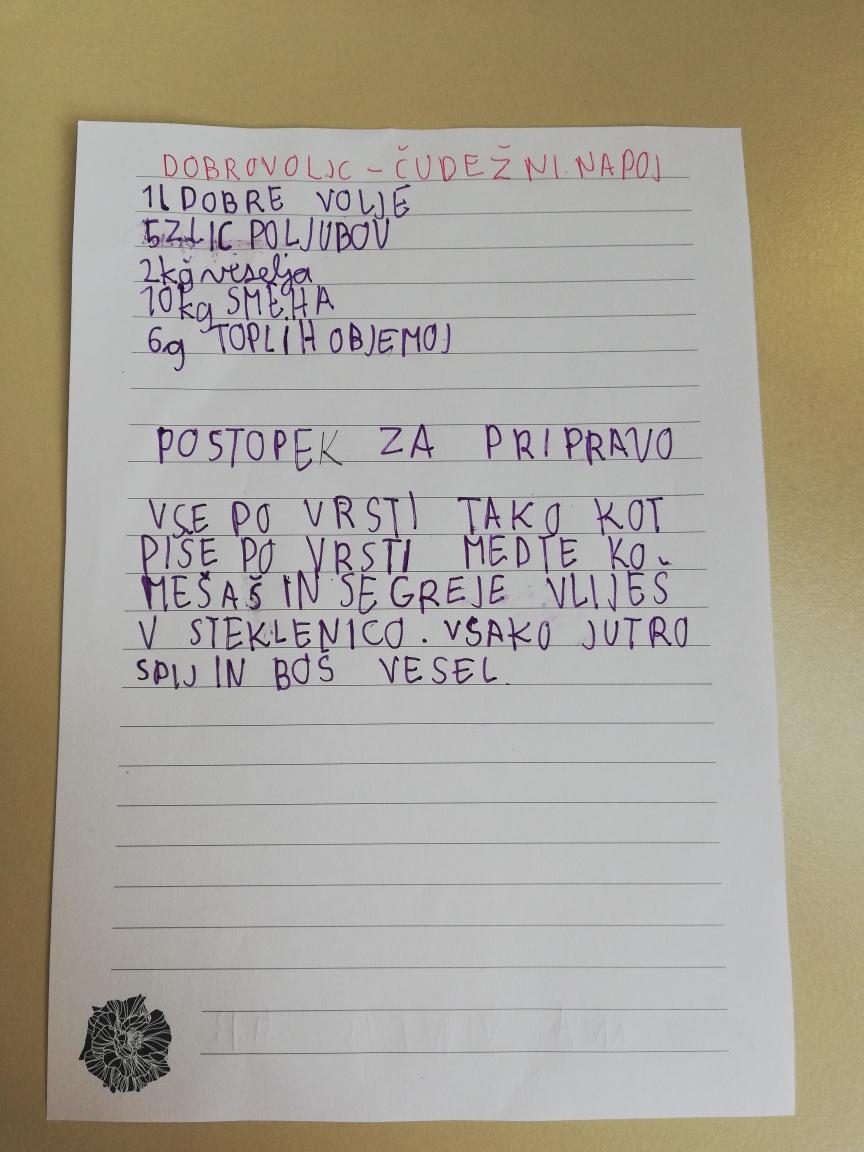 DOBROVOLJC - ČUDEŽNI NAPOJ
1L DOBRE VOLJE
5 ŽLIC POLJUBOV
2kg veselja
10kg SMEHA
6g TOPLIH OBJEMOJ
POSTOPEK ZA PRIPRAVO
VSE PO VRSTI TAKO KOT
PIŠE PO VRSTI MEDTE KO
MEŠAŠ IN SE GREJE VLIJEŠ
V STEKLENICO. VSAKO JUTRO
SPIJ IN BOŠ VESEL.